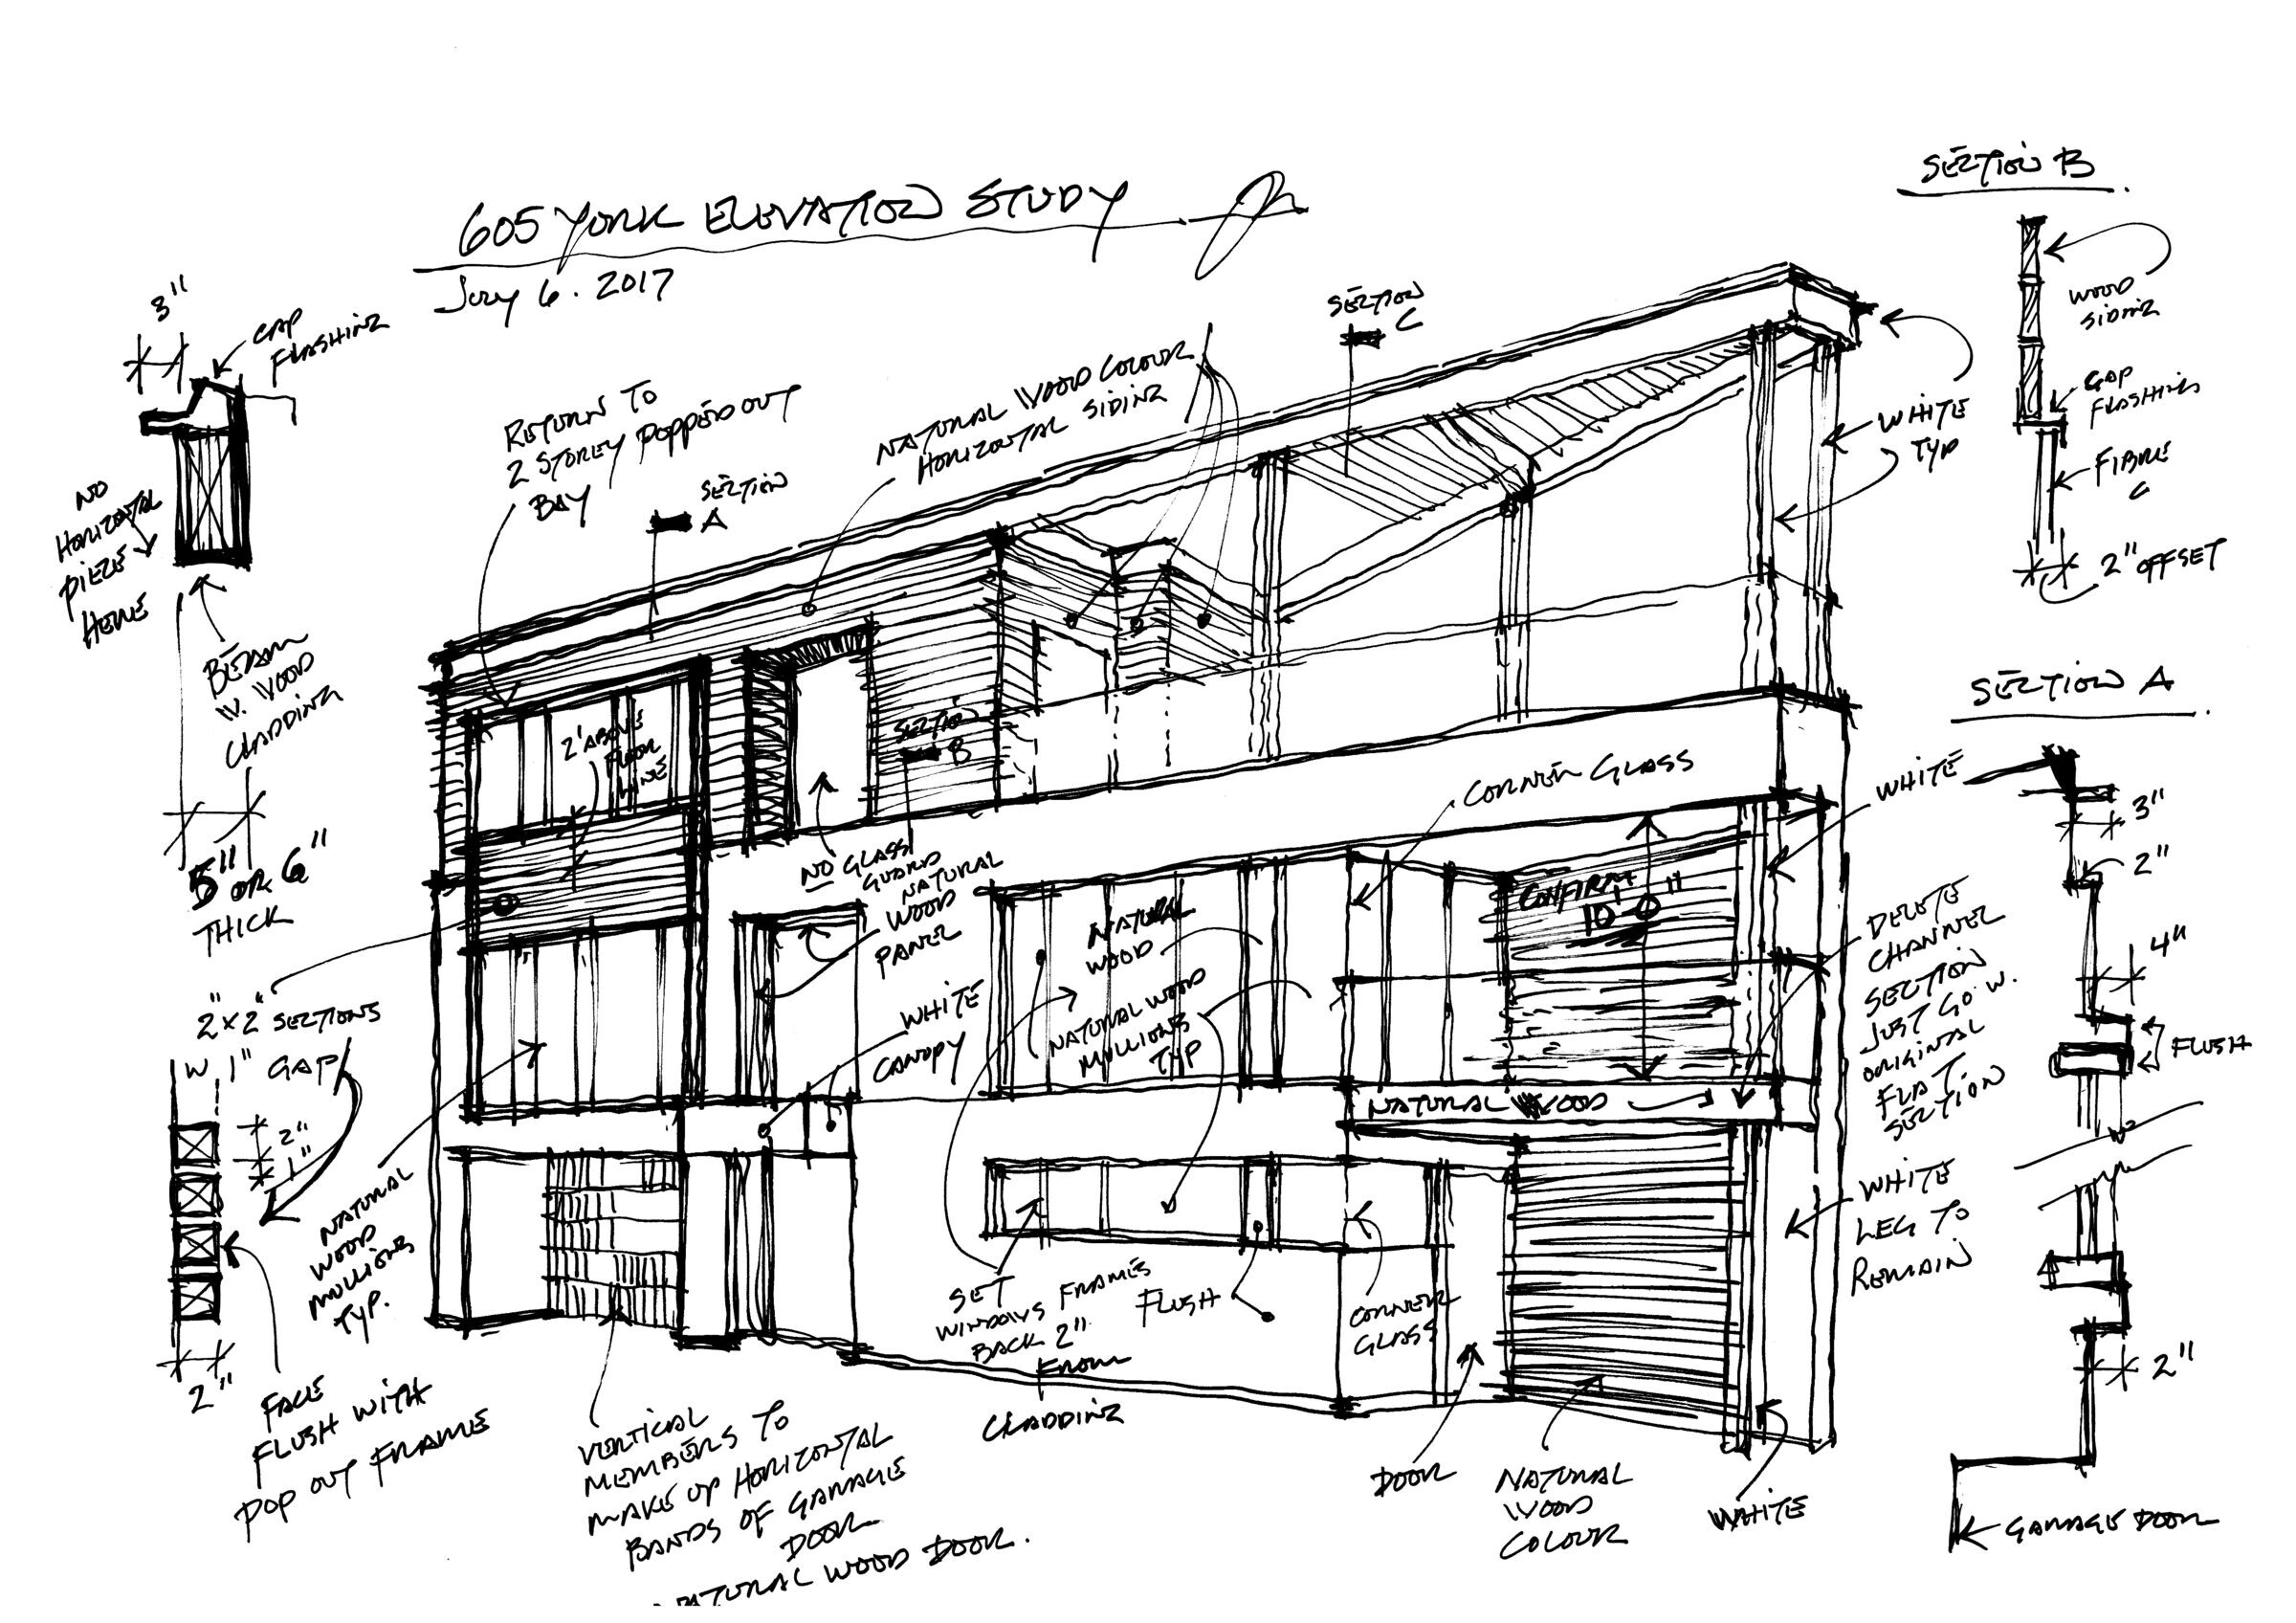 605 YORK ELEVATION STUDY
JULY 6. 2017
3"
CAP
FLASHING
NO
HORIZONTAL
PIECE
HERE
BEAM
W. WOOD
CLADDING
5" OR 6"
THICK
RETURN TO
2 STOREY POPPED OUT
BAY
SECTION
A
NATURAL WOOD COLOUR
HORIZONTAL SIDING
SECTION
C
WHITE
TYP
SECTION B
WOOD
SIDING
CAP
FLASHING
FIBRE
C
2" OFFSET
2' ABOVE
FLOOR
LINE
SECTION
B
NO GLASS
GUARD
NATURAL
WOOD
PANEL
WHITE
CANOPY
CORNER GLASS
NATURAL
WOOD
NATURAL WOOD
MULLIONS
TYP
CONFIRM
10'-0"
NATURAL WOOD
WHITE
DELETE
CHANNEL
SECTION
JUST GO W.
ORIGINAL
FLAT
SECTION
WHITE
LEG TO
REMAIN
SECTION A
3"
2"
4"
FLUSH
2"
GARAGE DOOR
2" x 2" SECTIONS
W 1" GAP
2"
1"
2"
FACE
FLUSH WITH
POP OUT FRAME
NATURAL
WOOD
MULLIONS
TYP.
VERTICAL
MEMBERS TO
MAKE UP HORIZONTAL
BANDS OF GARAGE
DOOR
NATURAL WOOD DOOR.
SET
WINDOWS FRAMES
BACK 2"
FROM
CLADDING
FLUSH
CORNER
GLASS
DOOR
NATURAL
WOOD
COLOUR
WHITE